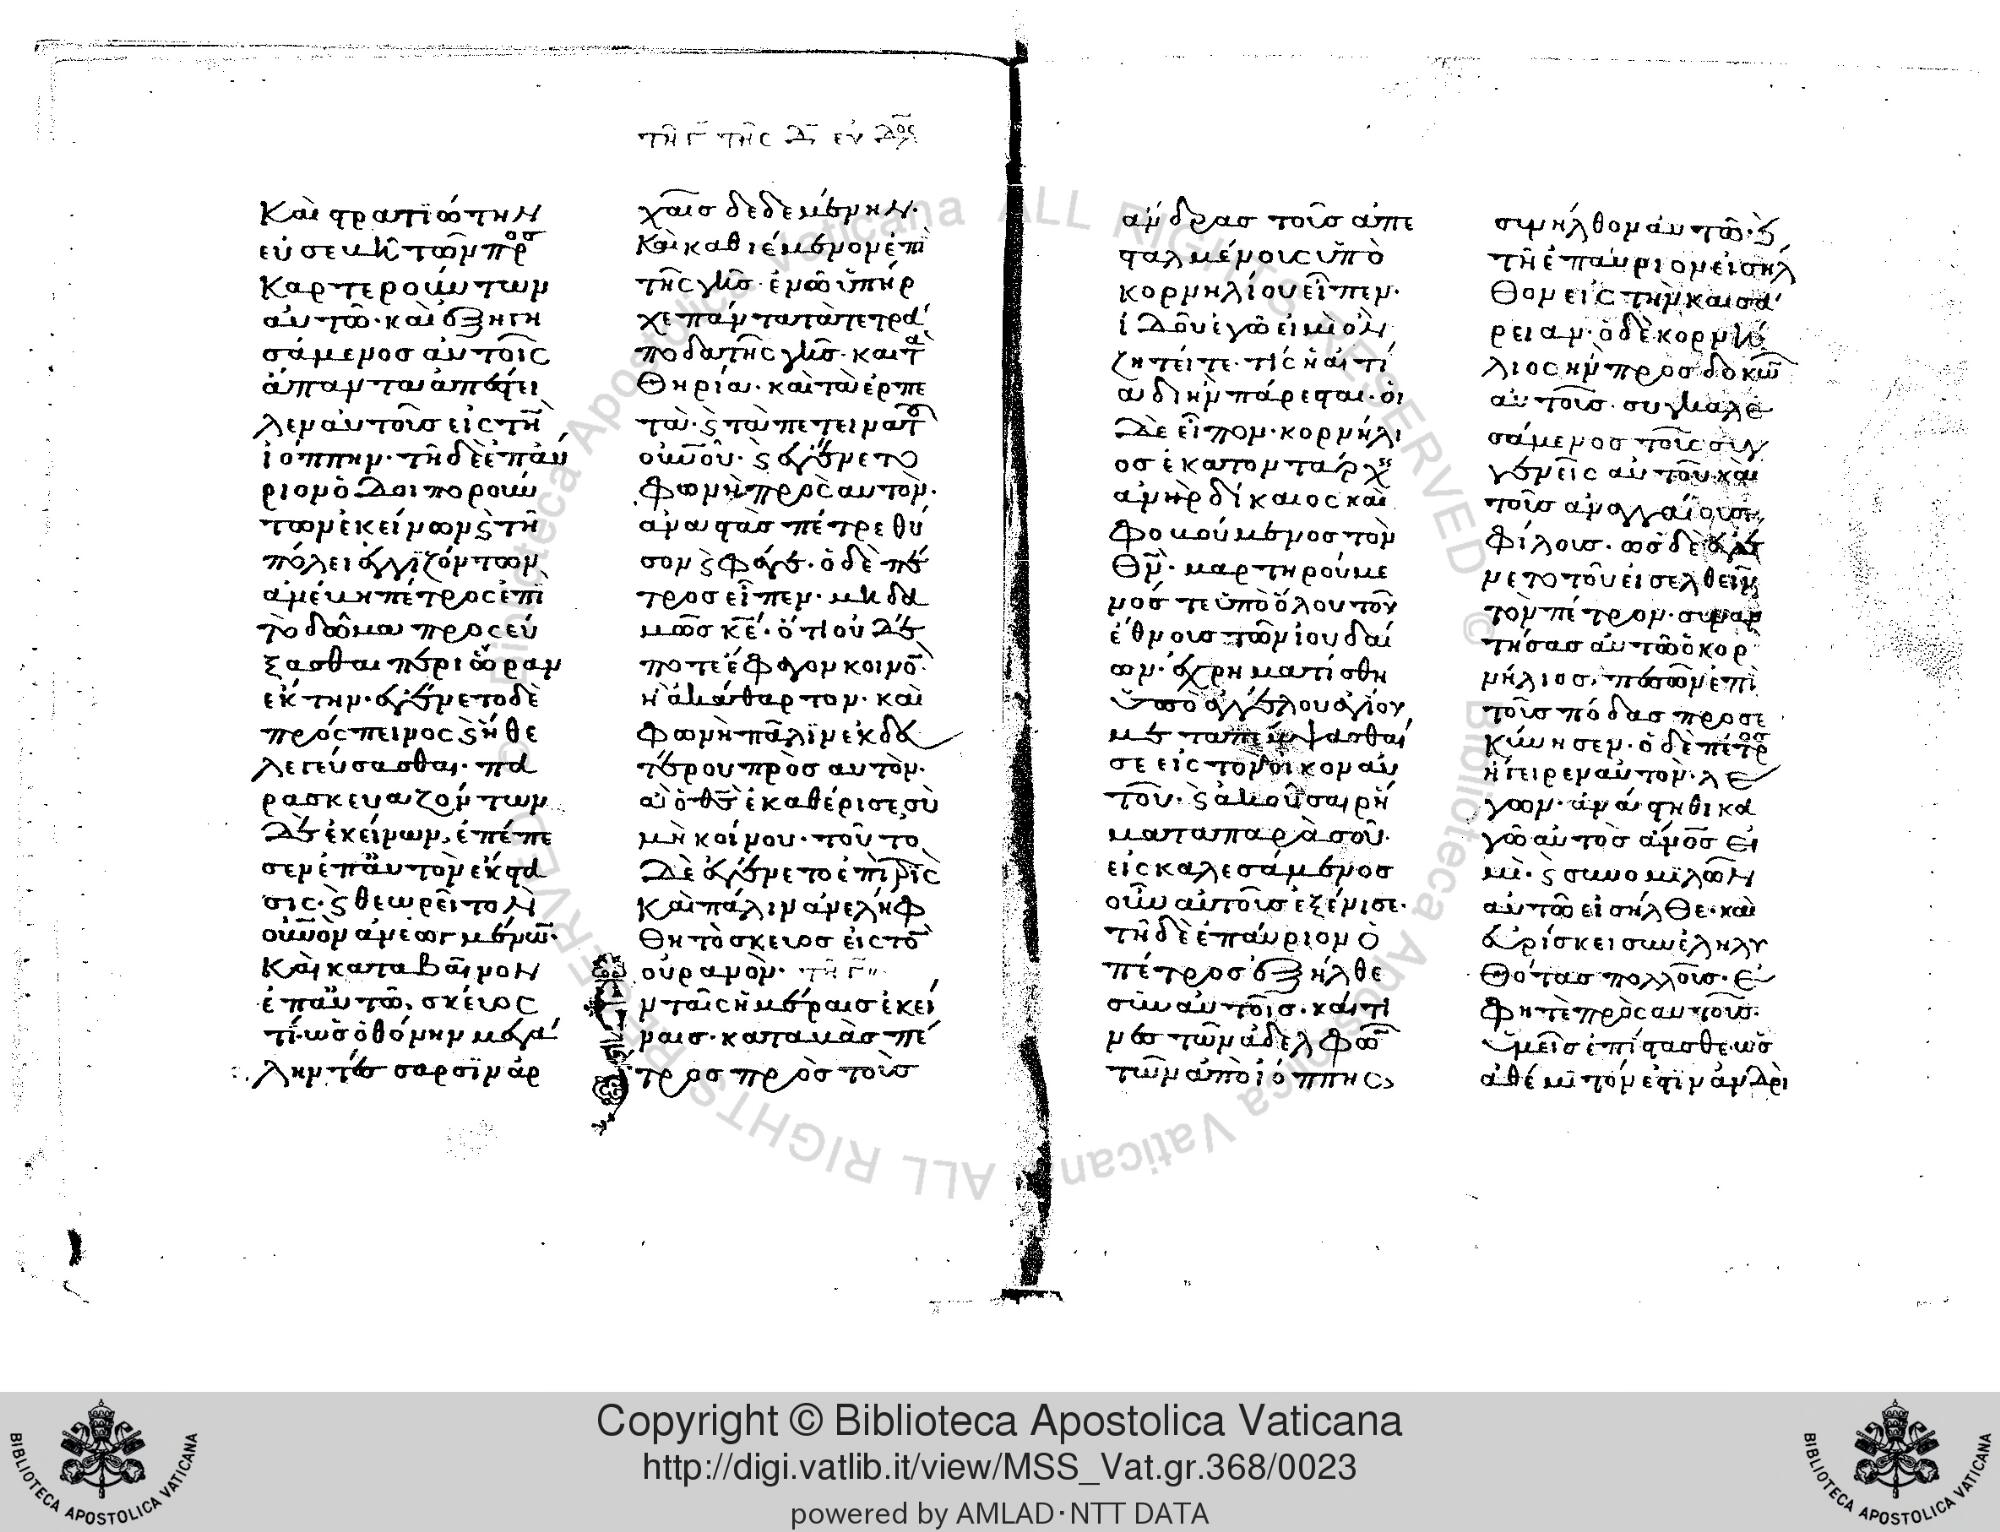 τῆ Γ τῆς Δ ευ Δ
Καὶ στρατιώτην
εὐσεβῆ τῶν πρ ος
Καρτερούντων
αὐτῶ· καὶ ἐξηγη
σάμενος αὐτοῖς
ἅπαντα ἀπέστει
λεν αὐτοὺς εἰς τὴν
ἰόππην· τῆ δὲ ἐπαύ
ριον ὁδοιπορούν
των ἐκείνων ϗ τῆ
πόλει ἐγγιζόντων
ἀνέβη πέτρος ἐπὶ
τὸ δῶμα προσεύ
ξασθαι περὶ ὥραν
ἕκτην· ἐγένετο δὲ
πρόσπεινος ϗ ἤθε
λε γεύσασθαι· πα
ρασκευαζόντων
δὲ ἐκείνων, ἐπέπε
σεν ἐπ' αὐτὸν ἔκστα
σις· ϗ θεωρεῖ τὸν
οὐνον ἀνεωγμένον·
Καὶ καταβαῖνον
ἐπ' αὐτῶ, σκεῦος
τί· ὡς ὀθόνην μεγά
λην τέσσαρσιν ἀρ
χαῖς δεδεμένην·
Καὶ καθιέμενον ἐπὶ
τῆς γῆς· ἐν ὧ ὑπῆρ
χε πάντα τὰ τετρά
ποδα τῆς γῆς· καὶ τὰ
θηρία· καὶ τὰ ἑρπε
τὰ· ϗ τὰ πετεινὰ τοῦ
οὐνοῦ· ϗ ἐγένετο
φωνὴ πρὸς αὐτόν·
ἀναστὰς πέτρε θῦ
σον ϗ φάγε· ὁ δὲ πέ
τρος εἶπεν· μηδα
μῶς κε· ὅτι οὐδέ
ποτε ἔφαγον κοινὸν
ἢ ἀκάθαρτον· καὶ
φωνὴ πάλιν ἐκ δευ
τέρου πρὸς αὐτόν·
ἃ ὁ θς ἐκαθέρισε, σὺ
μὴ κοίνου· τοῦτο
δὲ ἐγένετο ἐπὶ τρὶς
Καὶ πάλιν ἀνελήφ
θη τὸ σκεῦος εἰς τὸν
οὐρανόν· τῆ Γ
Ἐν ταῖς ἡμέραις ἐκεί
ναις· καταβὰς πέ
τρος πρὸς τοὺς
ἄνδρας τοὺς ἀπε
σταλμένους ὑπὸ
κορνηλίου εἶπεν·
ἰδοὺ ἐγώ εἰμι ὃν
ζητεῖτε· τίς ἡ αἰτί
α δι' ἣν πάρεσται· οἱ
δὲ εἶπον· κορνήλι
ος ἑκατοντάρχης
ἀνὴρ δίκαιος καὶ
φοβούμενος τὸν
θν· μαρτηρούμε
νός τε ὑπὸ ὅλου τοῦ
ἔθνους τῶν ἰουδαί
ων· ἐχρηματίσθη
ὑπὸ ἀγγέλου ἁγίου
μεταπέμψασθαί
σε εἰς τὸν οἶκον αὐ
τοῦ· ϗ ἀκοῦσαι ῥή
ματα παρὰ σοῦ·
εἰσκαλεσάμενος
οὖν αὐτοὺς ἐξένισε·
τῆ δὲ ἐπαύριον ὁ
πέτρος ἐξῆλθε
σὺν αὐτοῖς· καί τι
νες τῶν ἀδελφῶν
τῶν ἀπὸ ἰόππης,
συνῆλθον αὐτῶ· ϗ
τῆ ἐπαύριον εἰσῆλ
θον εἰς τὴν καισά
ρειαν· ὁ δὲ κορνή
λιος ἦν προσδοκῶν
αὐτούς· συγκαλε
σάμενος τοὺς συγ
γενεῖς αὐτοῦ· καὶ
τοὺς ἀναγγαίους
φίλους· ὡς δὲ ἐγέ
νετο τοῦ εἰσελθεῖν
τὸν πέτρον· συναν
τήσας αὐτῶ ὁ κορ
νήλιος, πεσὼν ἐπὶ
τοὺς πόδας προσε
κύνησεν· ὁ δὲ πέτρος
ἤγειρεν αὐτὸν· λέ
γων· ἀνάστηθι κα
γὼ αὐτὸς ἄνος εἰ
μὶ· ϗ συνομιλῶν
αὐτῶ εἰσῆλθε· καὶ
εὑρίσκει συνεληλυ
θότας πολλούς· ἔ
φη τὲ πρὸς αὐτούς·
ὑμεῖς ἐπίστασθε ὡς
ἀθέμιτόν ἐστιν ἀνδρὶ
© Biblioteca Apostolica Vaticana ALL RIGHTS RESERVED
Copyright © Biblioteca Apostolica Vaticana
http://digi.vatlib.it/view/MSS_Vat.gr.368/0023
powered by AMLAD·NTT DATA
BIBLIOTECA APOSTOLICA VATICANA
BIBLIOTECA APOSTOLICA VATICANA